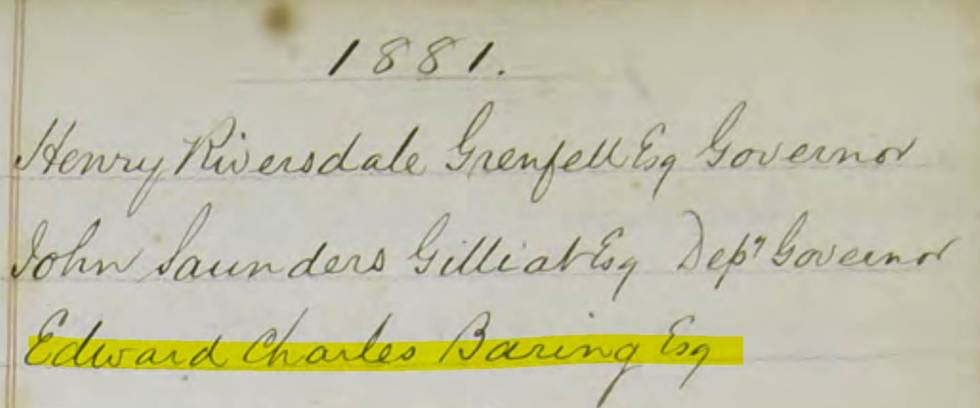 1881.
Henry Riversdale Grenfell Esq Governor
John Saunders Gilliat Esq Depy Governor
Edward Charles Baring Esq